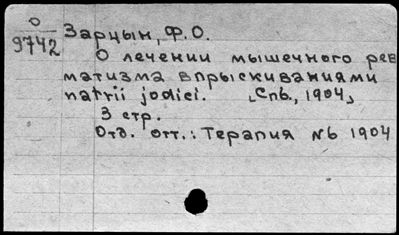 О
9742
Зарцын, Ф.О.
О лечении мышечного рев
матизма впрыскиваниями
natrii jodici. [Спб., 1904]
3 стр.
Отд. отт.: Терапия №6 1904